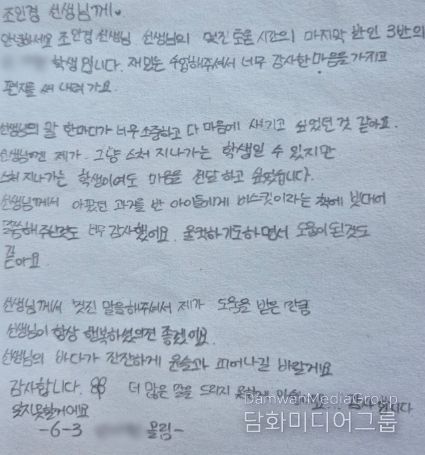 조안경 선생님께♥
안녕하세요 조안경 선생님 선생님의 멋진 도움 시간의 마지막 반인 3반의
학생 입니다. 재밌는 수업해주셔서 너무 감사한 마음을 가지고
편지를 써 내려 가요.
선생님의 말 한마디가 너무 소중하고 다 마음에 새기고 싶었던 것 같아요.
선생님껜 제가 그냥 스쳐 지나가는 학생일 수 있지만
스쳐 지나가는 학생이여도 마음을 전달 하고 싶었습니다.
선생님께서 아팠던 과거를 반 아이들에게 비스킷이라는 책에 빗대어
말씀해주신것도 너무 감사했어요. 울컥하기도하면서 도움이 된것도
같아요
선생님께서 멋진 말을해주셔서 제가 도움을 받은 만큼
선생님이 항상 행복하셨으면 좋겠어요.
선생님의 바다가 잔잔하게 윤슬과 피어나길 바랄게요
감사합니다. 더 많은 말을 드리지 못하
잊지못할거에요
-6-3 올림-
DamwanMediaGroup
담화미디어그룹